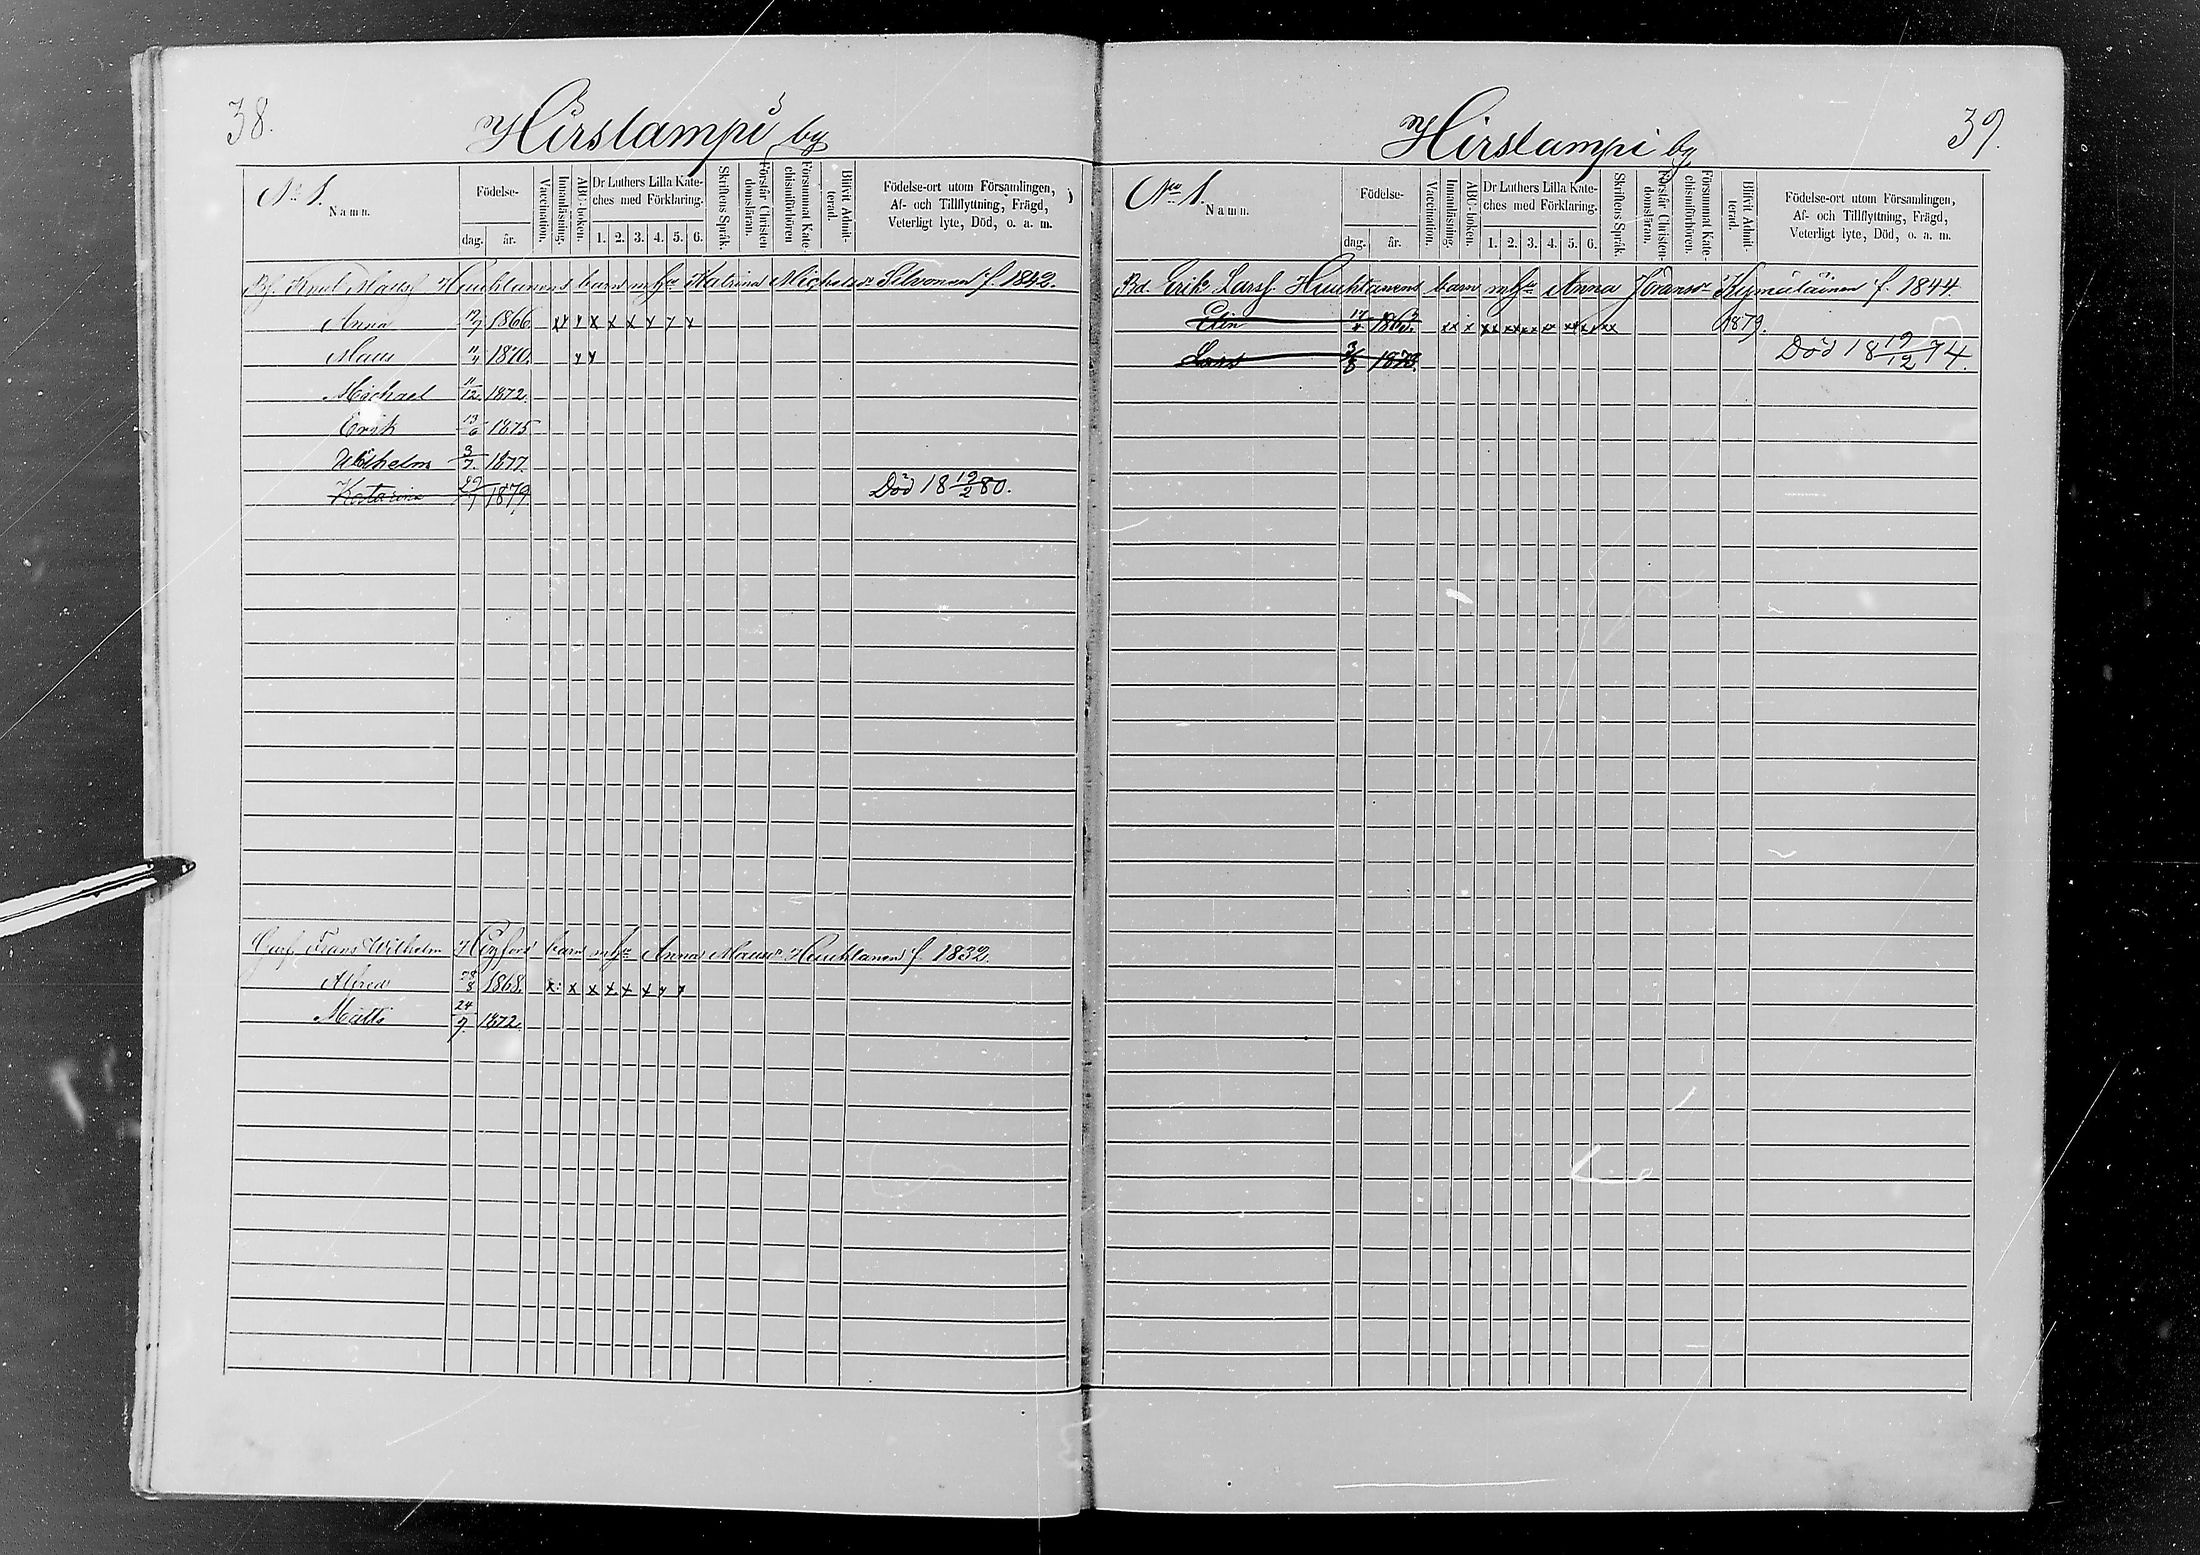 38.
Hirslampi by
No 1.
Namn.
Födelse-
dag. år.
Vaccination.
Innanläsning.
ABC-boken.
Dr Luthers Lilla Kate-
ches med Förklaring.
1. 2. 3. 4. 5. 6.
Skriftens Språk.
Förstår Christen-
domsläran.
Försummat Kate-
chismiförhören
Blifvit Admit-
terad.
Födelse-ort utom Församlingen,
Af- och Tillflyttning, Frägd,
Veterligt lyte, Död, o. a. m.
Knut Matss Heuchlanens barn m hu Katrina Michelsr Silvonen f. 1842.
Anna 1866 x x x x x x x x
Maus 11/4 1870. x x
Michael 11/12 1872.
Erik 13/6 1875
Wilhelm 3/7 1877.
Katarina 29/7 1879. Död 18 19/2 80.
Frans Wilhelm barn m hu Anna Mausr Heuchlanen f. 1832.
Alfred 1868. x x x x x x x x
Matts 24/7 1872.
39.
Hirslampi by
No 1.
Namn.
Födelse-
dag. år.
Vaccination.
Innanläsning.
ABC-boken.
Dr Luthers Lilla Kate-
ches med Förklaring.
1. 2. 3. 4. 5. 6.
Skriftens Språk.
Förstår Christen-
domsläran.
Försummat Kate-
chismiförhören.
Blifvit Admit-
terad.
Födelse-ort utom Församlingen,
Af- och Tillflyttning, Frägd,
Veterligt lyte, Död, o. a. m.
Erik Larss Heuchlanens barn m hu Anna Jöransr Kymäläinen f. 1844.
Elin xx x xx xx xx xx xx xx 1879.
Lars 1873. Död 18 19/12 74.